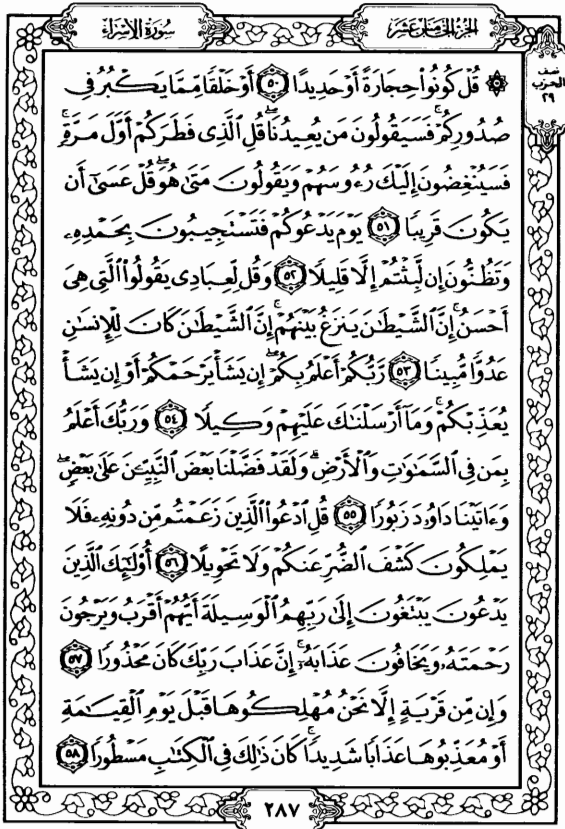 سُورَةُ الإِسْرَاء
الجُزْءُ الخَامِسَ عَشَرَ
نصف
الحزب
٢٩
۞ قُلۡ كُونُواْ حِجَارَةً أَوۡ حَدِيدًا ٥٠ أَوۡ خَلۡقٗا مِّمَّا يَكۡبُرُ فِي
صُدُورِكُمۡۚ فَسَيَقُولُونَ مَن يُعِيدُنَاۖ قُلِ ٱلَّذِي فَطَرَكُمۡ أَوَّلَ مَرَّةٖۚ
فَسَيُنۡغِضُونَ إِلَيۡكَ رُءُوسَهُمۡ وَيَقُولُونَ مَتَىٰ هُوَۖ قُلۡ عَسَىٰٓ أَن
يَكُونَ قَرِيبٗا ٥١ يَوۡمَ يَدۡعُوكُمۡ فَتَسۡتَجِيبُونَ بِحَمۡدِهِۦ
وَتَظُنُّونَ إِن لَّبِثۡتُمۡ إِلَّا قَلِيلٗا ٥٢ وَقُل لِّعِبَادِي يَقُولُواْ ٱلَّتِي هِيَ
أَحۡسَنُۚ إِنَّ ٱلشَّيۡطَٰنَ يَنزَغُ بَيۡنَهُمۡۚ إِنَّ ٱلشَّيۡطَٰنَ كَانَ لِلۡإِنسَٰنِ
عَدُوّٗا مُّبِينٗا ٥٣ رَّبُّكُمۡ أَعۡلَمُ بِكُمۡۖ إِن يَشَأۡ يَرۡحَمۡكُمۡ أَوۡ إِن يَشَأۡ
يُعَذِّبۡكُمۡۚ وَمَآ أَرۡسَلۡنَٰكَ عَلَيۡهِمۡ وَكِيلٗا ٥٤ وَرَبُّكَ أَعۡلَمُ
بِمَن فِي ٱلسَّمَٰوَٰتِ وَٱلۡأَرۡضِۗ وَلَقَدۡ فَضَّلۡنَا بَعۡضَ ٱلنَّبِيِّـۧنَ عَلَىٰ بَعۡضٖۖ
وَءَاتَيۡنَا دَاوُۥدَ زَبُورٗا ٥٥ قُلِ ٱدۡعُواْ ٱلَّذِينَ زَعَمۡتُم مِّن دُونِهِۦ فَلَا
يَمۡلِكُونَ كَشۡفَ ٱلضُّرِّ عَنكُمۡ وَلَا تَحۡوِيلًا ٥٦ أُوْلَٰٓئِكَ ٱلَّذِينَ
يَدۡعُونَ يَبۡتَغُونَ إِلَىٰ رَبِّهِمُ ٱلۡوَسِيلَةَ أَيُّهُمۡ أَقۡرَبُ وَيَرۡجُونَ
رَحۡمَتَهُۥ وَيَخَافُونَ عَذَابَهُۥٓۚ إِنَّ عَذَابَ رَبِّكَ كَانَ مَحۡذُورٗا ٥٧
وَإِن مِّن قَرۡيَةٍ إِلَّا نَحۡنُ مُهۡلِكُوهَا قَبۡلَ يَوۡمِ ٱلۡقِيَٰمَةِ
أَوۡ مُعَذِّبُوهَا عَذَابٗا شَدِيدٗاۚ كَانَ ذَٰلِكَ فِي ٱلۡكِتَٰبِ مَسۡطُورٗا ٥٨
٢٨٧